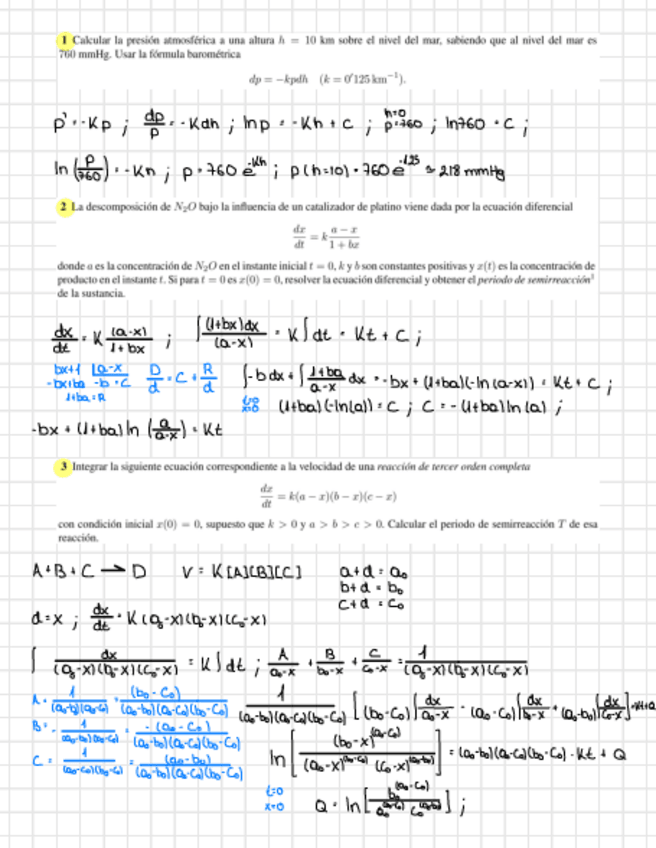 1 Calcular la presión atmosférica a una altura h = 10 km sobre el nivel del mar, sabiendo que al nivel del mar es
760 mmHg. Usar la fórmula barométrica
dp = −kpdh (k = 0'125 km⁻¹).
p' = -Kp ; dp/p = -Kdh ; ln p = -Kh + C ; h=0 p=760 ; ln760 = C ;
ln (p/760) = -Kh ; p = 760 e^-Kh ; p(h=10) = 760 e^-1.25 ≈ 218 mmHg
2 La descomposición de N₂O bajo la influencia de un catalizador de platino viene dada por la ecuación diferencial
dx/dt = k (a − x)/(1 + bx)
donde a es la concentración de N₂O en el instante inicial t = 0, k y b son constantes positivas y x(t) es la concentración de
producto en el instante t. Si para t = 0 es x(0) = 0, resolver la ecuación diferencial y obtener el periodo de semirreacción
de la sustancia.
dx/dt = K (a-x)/(1+bx) ; ∫ (1+bx)dx/(a-x) = K∫dt = Kt + C ;
bx+1 |a-x
-bx+ba -b = C
1+ba = R
D/d = C + R/d
∫-bdx + ∫ (1+ba)/(a-x) dx = -bx + (1+ba)(-ln(a-x)) = Kt + C ;
t=0 x=0 (1+ba)(-ln(a)) = C ; C = -(1+ba)ln(a) ;
-bx + (1+ba) ln (a/(a-x)) = Kt
3 Integrar la siguiente ecuación correspondiente a la velocidad de una reacción de tercer orden completa
dx/dt = k(a − x)(b − x)(c − x)
con condición inicial x(0) = 0, supuesto que k > 0 y a > b > c > 0. Calcular el periodo de semirreacción T de esa
reacción.
A+B+C → D V = K[A][B][C] a+d = a₀
b+d = b₀
c+d = c₀
d=x ; dx/dt = K(a₀-x)(b₀-x)(c₀-x)
∫ dx/((a₀-x)(b₀-x)(c₀-x)) = K∫dt ; A/(a₀-x) + B/(b₀-x) + C/(c₀-x) = 1/((a₀-x)(b₀-x)(c₀-x))
A = 1/((a₀-b₀)(a₀-c₀)) = (b₀-c₀)/((a₀-b₀)(a₀-c₀)(b₀-c₀))
B = -1/((a₀-b₀)(b₀-c₀)) = -(a₀-c₀)/((a₀-b₀)(a₀-c₀)(b₀-c₀))
C = 1/((a₀-c₀)(b₀-c₀)) = (a₀-b₀)/((a₀-b₀)(a₀-c₀)(b₀-c₀))
1/((a₀-b₀)(a₀-c₀)(b₀-c₀)) [(b₀-c₀)∫dx/(a₀-x) - (a₀-c₀)∫dx/(b₀-x) + (a₀-b₀)∫dx/(c₀-x)] = Kt+Q
ln [(b₀-x)^(a₀-c₀)/((a₀-x)^(b₀-c₀) (c₀-x)^(a₀-b₀))] = (a₀-b₀)(a₀-c₀)(b₀-c₀)·Kt + Q
t=0 x=0 Q = ln[b₀^(a₀-c₀)/(a₀^(b₀-c₀) c₀^(a₀-b₀))] ;